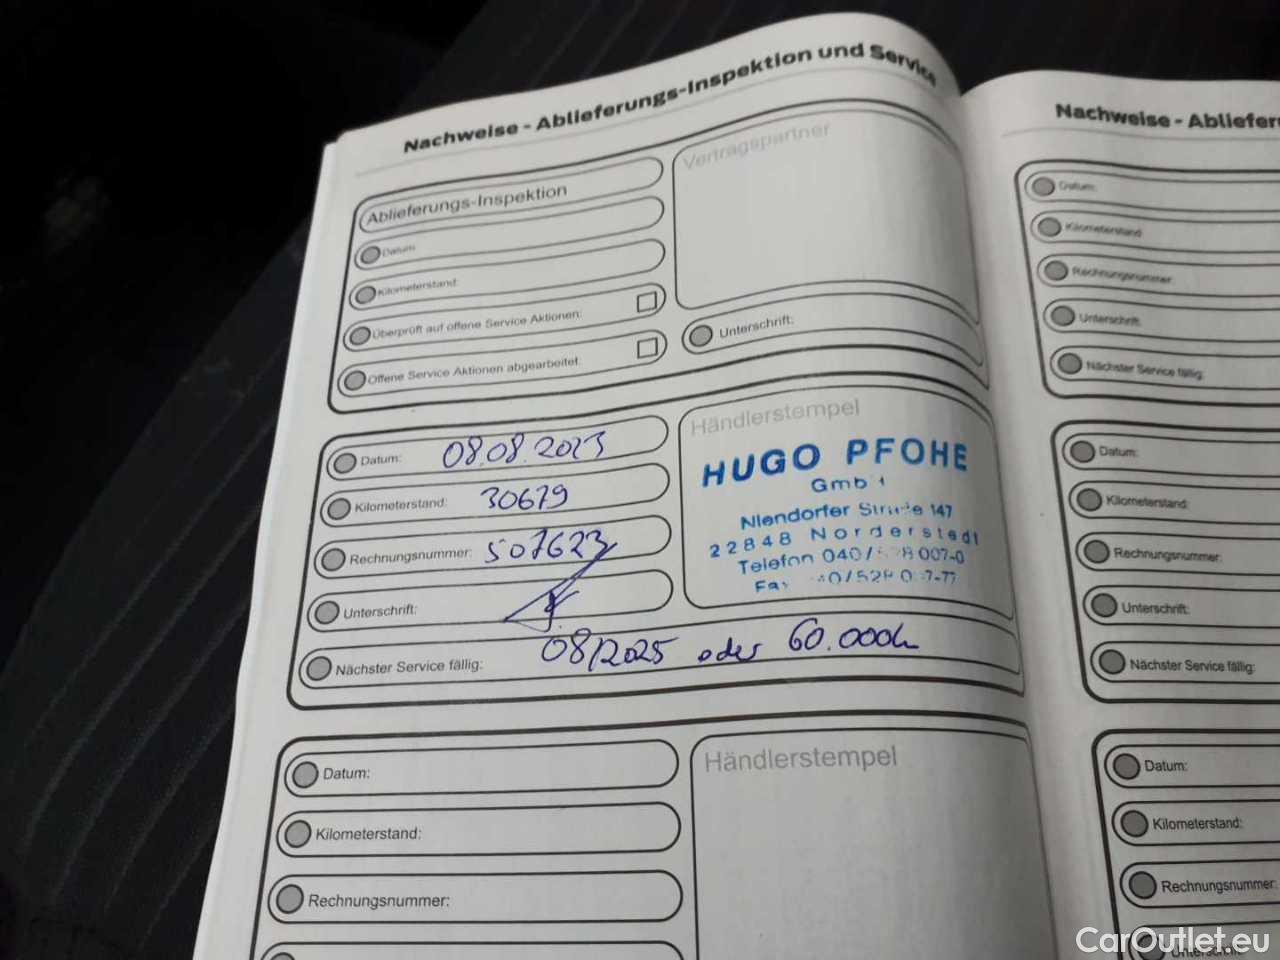 Nachweise - Ablieferungs-Inspektion und Service
Ablieferungs-Inspektion
Datum:
Kilometerstand:
Überprüft auf offene Service Aktionen:
Offene Service Aktionen abgearbeitet:
Vertragspartner
Unterschrift:
Datum: 08.08.2023
Kilometerstand: 30679
Rechnungsnummer: 507623
Unterschrift:
Nächster Service fällig: 08/2025 oder 60.000
Händlerstempel
HUGO PFOHE
Niendorfer 147
22848 Norderstedt
Telefon 040/ 007-0
Datum:
Kilometerstand:
Rechnungsnummer:
Händlerstempel
Nachweise - Ablieferu
Datum:
Kilometerstand:
Rechnungsnummer:
Unterschrift:
Nächster Service fällig:
Datum:
Kilometerstand:
Rechnungsnummer:
Unterschrift:
Nächster Service fällig:
Datum:
Kilometerstand:
Rechnungsnummer:
Unterschrift:
CarOutlet.eu